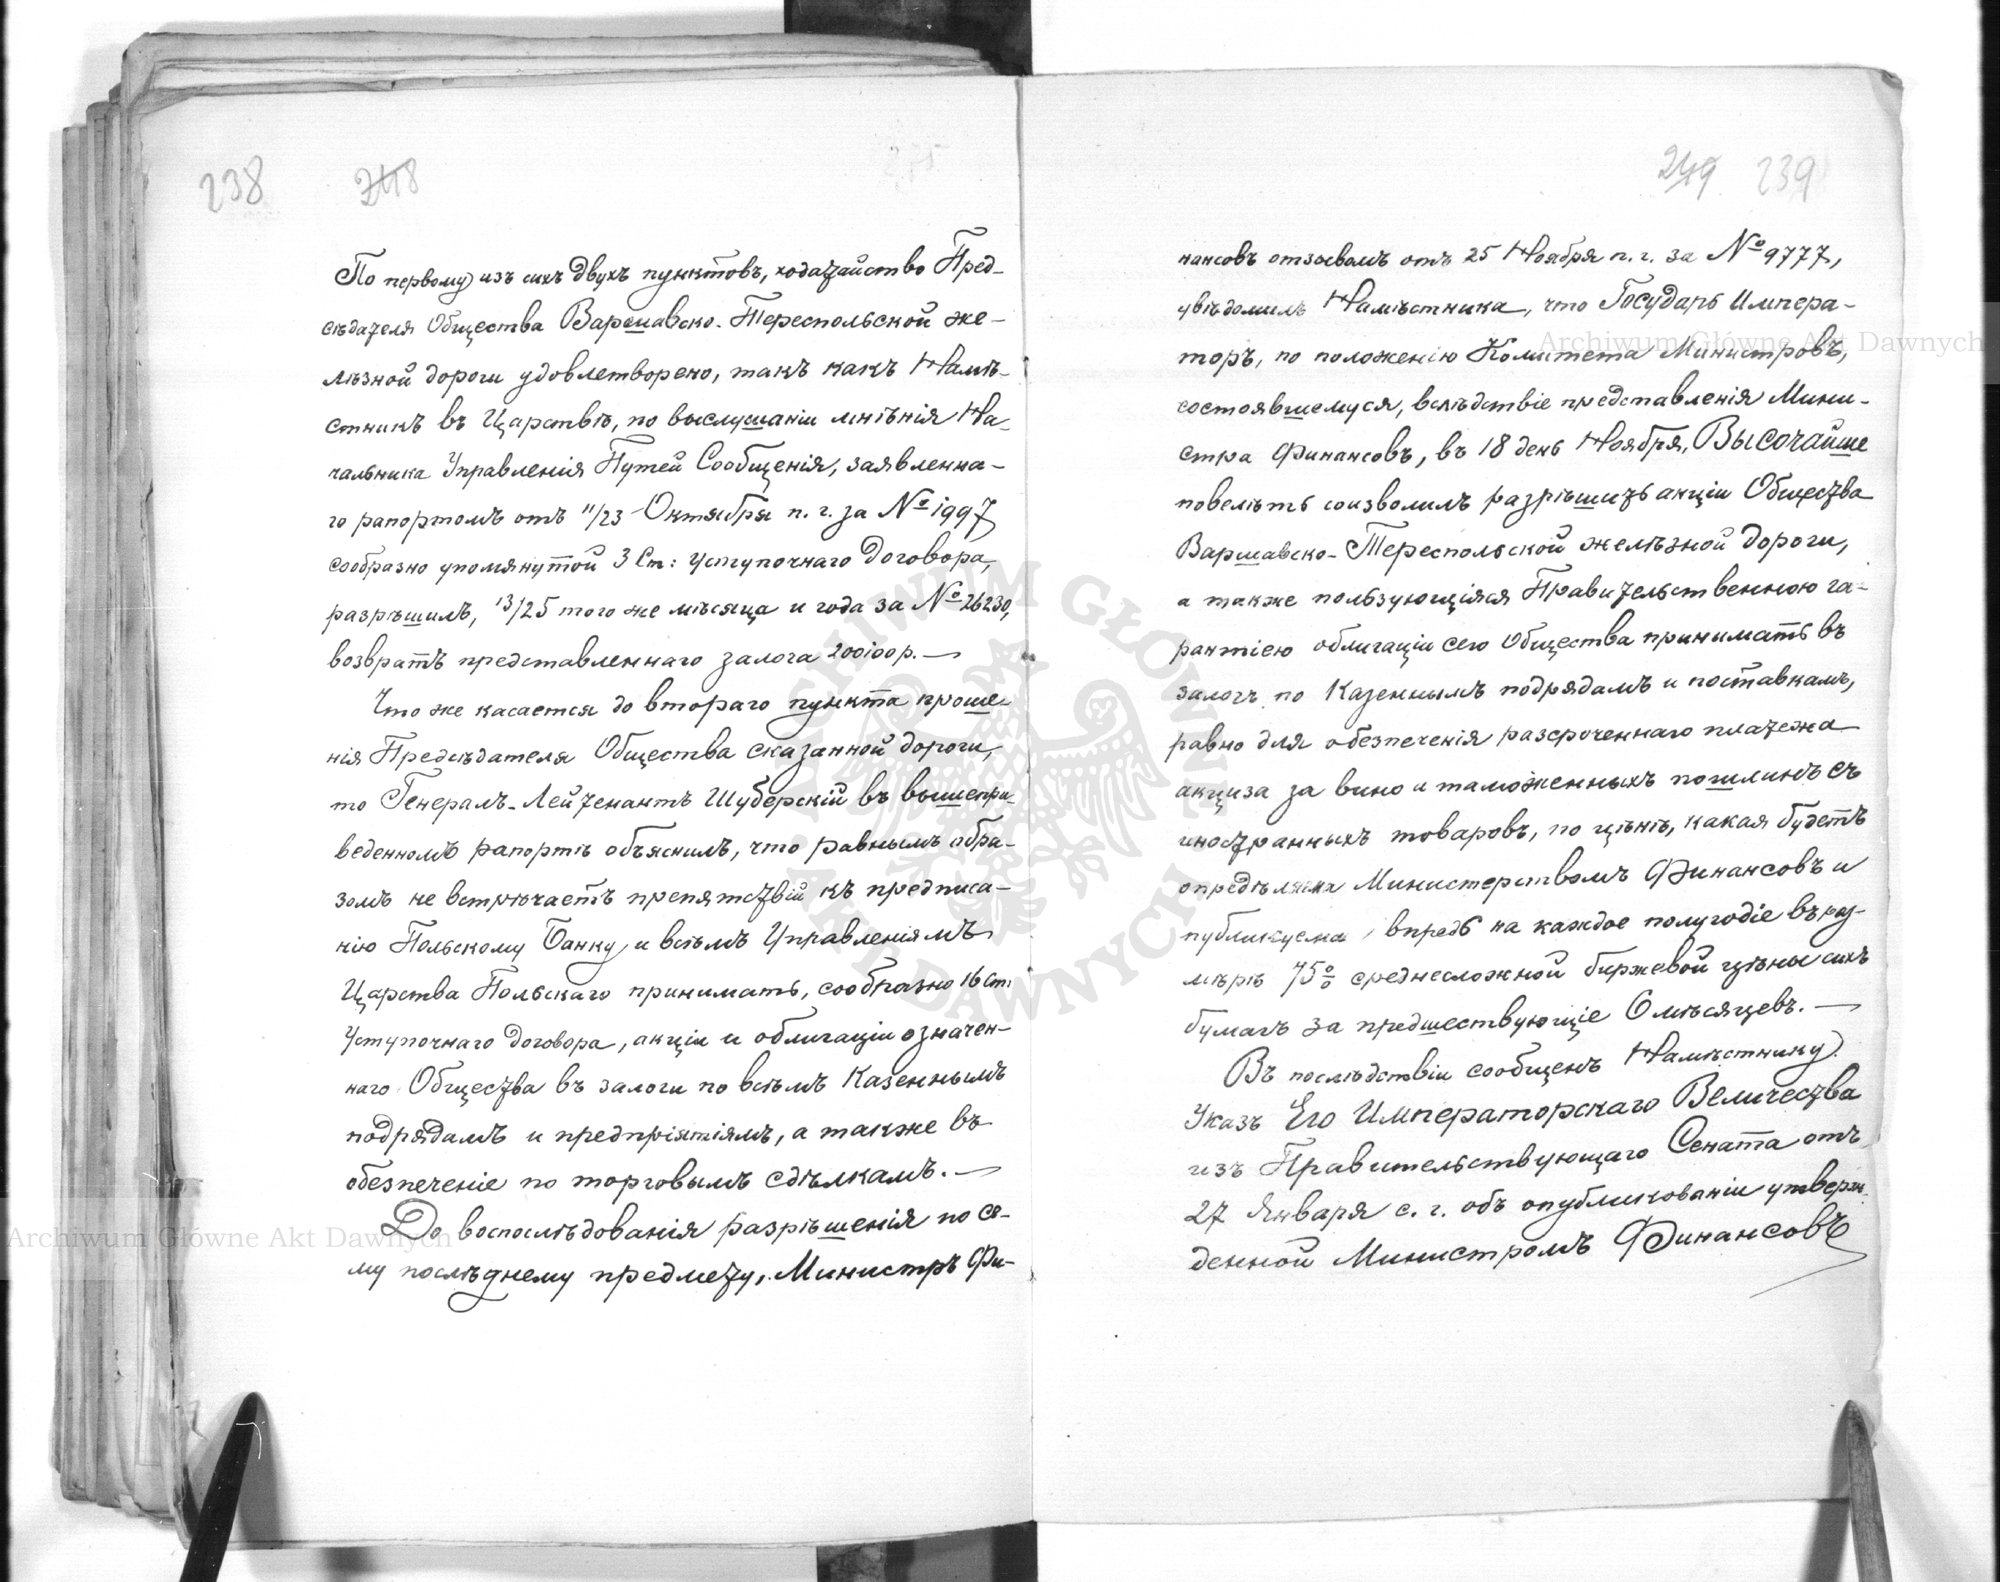 238 248
По первому изъ сихъ двухъ пунктовъ, ходатайство Пред-
сѣдателя Общества Варшавско-Тереспольской же-
лѣзной дороги удовлетворено, такъ какъ Намѣ-
стникъ въ Царствѣ, по выслушаніи мнѣнія На-
чальника Управленія Путей Сообщенія, заявленна-
го рапортомъ отъ 11/23 Октября п. г. за № 1997
сообразно упомянутой 3 Ст: Уступочнаго Договора,
разрѣшилъ, 13/25 того же мѣсяца и года за № 26230,
возвратъ представленнаго залога 200100 р. —
Что же касается до втораго пункта проше-
нія Предсѣдателя Общества сказанной дороги,
то Генералъ-Лейтенантъ Шуберскій въ вышепри-
веденномъ рапортѣ объяснилъ, что равнымъ обра-
зомъ не встрѣчаетъ препятствій къ предписа-
нію Польскому Банку и всѣмъ Управленіямъ
Царства Польскаго принимать, сообразно 16 Ст:
Уступочнаго Договора, акціи и облигаціи означен-
наго Общества въ залоги по всѣмъ Казеннымъ
подрядамъ и предпріятіямъ, а также въ
обезпеченіе по торговымъ сдѣлкамъ. —
До воспослѣдованія разрѣшенія по се-
му послѣднему предмету, Министръ Фи-
249 239
нансовъ отзывомъ отъ 25 Ноября п. г. за № 9777,
увѣдомилъ Намѣстника, что Государь Импера-
торъ, по положенію Комитета Министровъ,
состоявшемуся, вслѣдствіе представленія Мини-
стра Финансовъ, въ 18 день Ноября, Высочайше
повелѣть соизволилъ разрѣшить акціи Общества
Варшавско-Тереспольской желѣзной дороги,
а также пользующіяся Правительственною га-
рантіею облигаціи сего Общества принимать въ
залогъ по Казеннымъ подрядамъ и поставкамъ,
равно для обезпеченія разсроченнаго платежа
акциза за вино и таможенныхъ пошлинъ съ
иностранныхъ товаровъ, по цѣнѣ, какая будетъ
опредѣляема Министерствомъ Финансовъ и
публикуема впредь на каждое полугодіе въ раз-
мѣрѣ 75% среднесложной биржевой цѣны сихъ
бумагъ за предшествующіе 6 мѣсяцевъ. —
Въ послѣдствіи сообщенъ Намѣстнику
Указъ Его Императорскаго Величества
изъ Правительствующаго Сената отъ
27 Января с. г. объ опубликованіи утверж-
денной Министромъ Финансовъ
Archiwum Główne Akt Dawnych
Archiwum Główne Akt Dawnych
ARCHIWUM GŁÓWNE AKT DAWNYCH